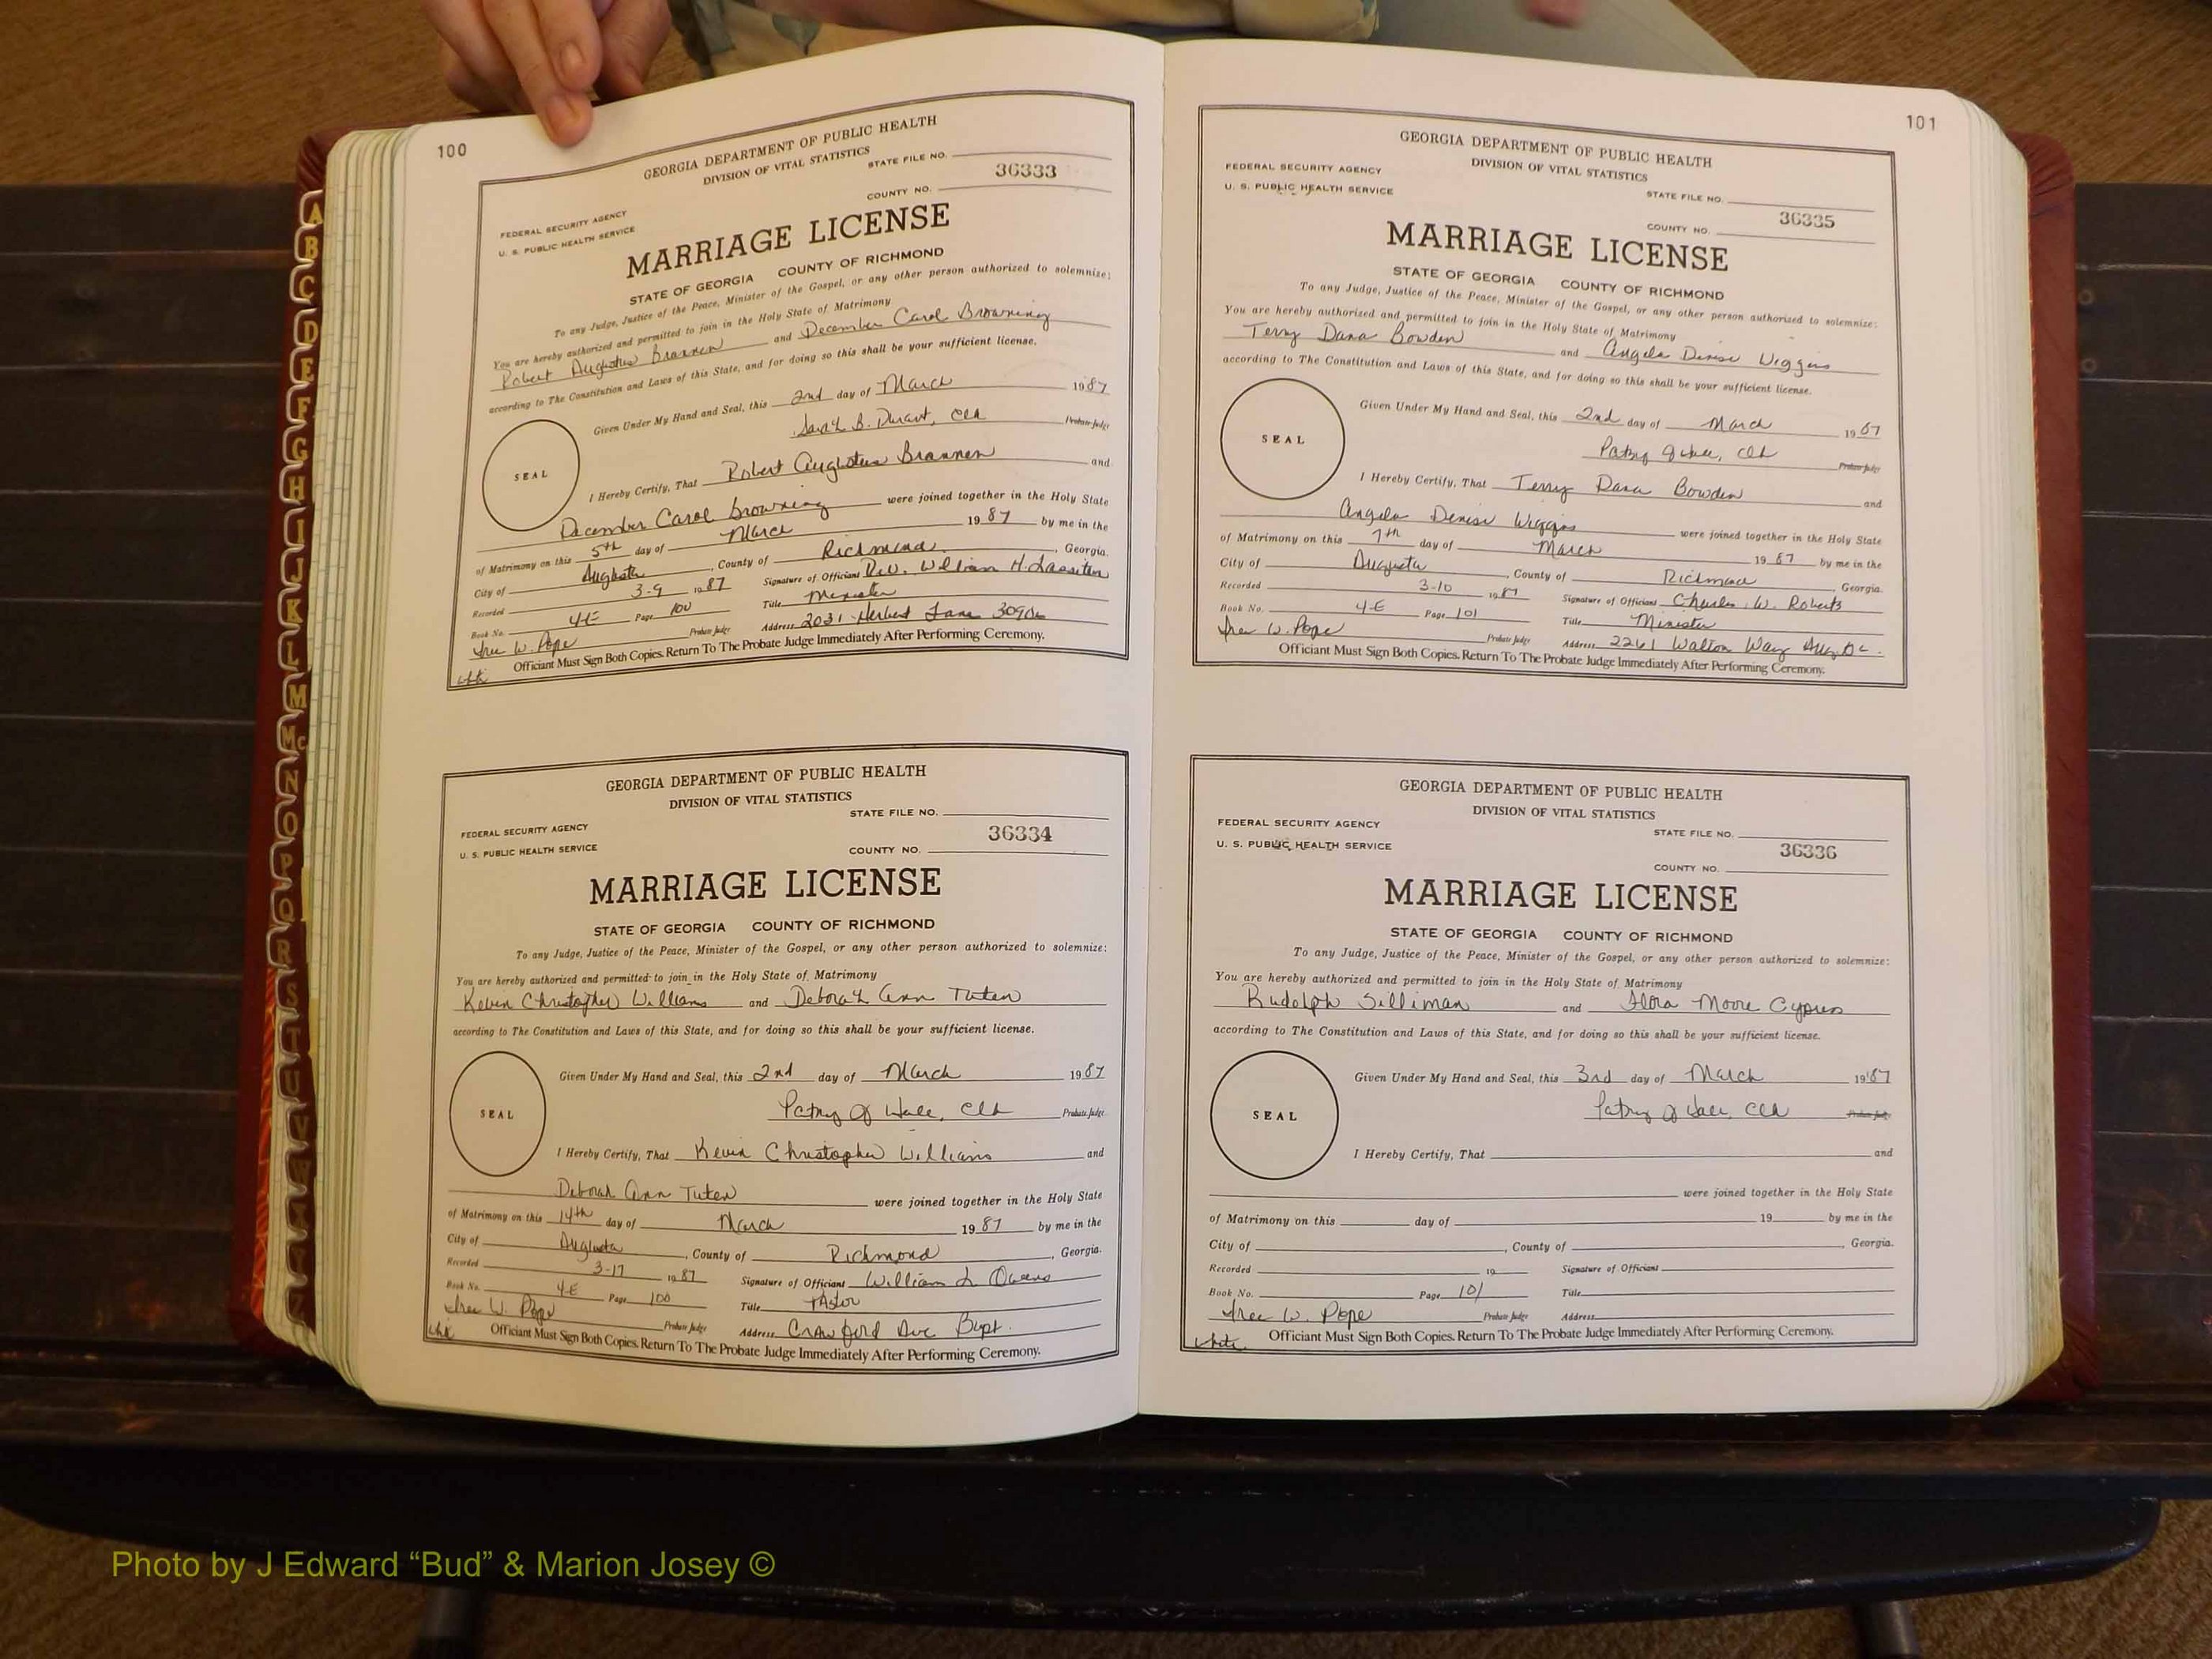 100
GEORGIA DEPARTMENT OF PUBLIC HEALTH
DIVISION OF VITAL STATISTICS
STATE FILE NO.
36333
COUNTY NO.
FEDERAL SECURITY AGENCY
U. S. PUBLIC HEALTH SERVICE
MARRIAGE LICENSE
STATE OF GEORGIA COUNTY OF RICHMOND
To any Judge, Justice of the Peace, Minister of the Gospel, or any other person authorized to solemnize:
You are hereby authorized and permitted to join in the Holy State of Matrimony
Robert Augustus Brannen and December Carol Browning
according to The Constitution and Laws of this State, and for doing so this shall be your sufficient license.
Given Under My Hand and Seal, this 2nd day of March 1987
Sarah B. Durant, Clk Probate Judge
SEAL
I Hereby Certify, That Robert Augustus Brannen and
December Carol Browning were joined together in the Holy State
of Matrimony on this 5th day of March 1987 by me in the
City of Augusta, County of Richmond, Georgia.
Recorded 3-9 1987 Signature of Officiant Rev. William H. Lassiter
Book No. 4-E Page 100 Title Minister
Probate Judge Address 2031 Herbert Lane
W. Pope
Officiant Must Sign Both Copies. Return To The Probate Judge Immediately After Performing Ceremony.
GEORGIA DEPARTMENT OF PUBLIC HEALTH
DIVISION OF VITAL STATISTICS
STATE FILE NO.
FEDERAL SECURITY AGENCY
36334
U. S. PUBLIC HEALTH SERVICE
COUNTY NO.
MARRIAGE LICENSE
STATE OF GEORGIA COUNTY OF RICHMOND
To any Judge, Justice of the Peace, Minister of the Gospel, or any other person authorized to solemnize:
You are hereby authorized and permitted to join in the Holy State of Matrimony
Kevin Christopher Williams and Deborah Ann Tuten
according to The Constitution and Laws of this State, and for doing so this shall be your sufficient license.
Given Under My Hand and Seal, this 2nd day of March 1987
Clk Probate Judge
SEAL
I Hereby Certify, That Kevin Christopher Williams and
Deborah Ann Tuten were joined together in the Holy State
of Matrimony on this 14th day of March 1987 by me in the
City of Augusta, County of Richmond, Georgia.
Recorded 3-17 1987 Signature of Officiant William L Owens
Book No. 4-E Page 100 Title Pastor
W. Pope Probate Judge Address Crawford Ave Bapt.
Officiant Must Sign Both Copies. Return To The Probate Judge Immediately After Performing Ceremony.
101
GEORGIA DEPARTMENT OF PUBLIC HEALTH
DIVISION OF VITAL STATISTICS
FEDERAL SECURITY AGENCY
U. S. PUBLIC HEALTH SERVICE
STATE FILE NO.
36335
COUNTY NO.
MARRIAGE LICENSE
STATE OF GEORGIA COUNTY OF RICHMOND
To any Judge, Justice of the Peace, Minister of the Gospel, or any other person authorized to solemnize:
You are hereby authorized and permitted to join in the Holy State of Matrimony
Terry Dana Bowden and Angela Denise Wiggins
according to The Constitution and Laws of this State, and for doing so this shall be your sufficient license.
Given Under My Hand and Seal, this 2nd day of March 1987
Clk Probate Judge
SEAL
I Hereby Certify, That Terry Dana Bowden and
Angela Denise Wiggins were joined together in the Holy State
of Matrimony on this 7th day of March 1987 by me in the
City of Augusta, County of Richmond, Georgia.
Recorded 3-10 1987 Signature of Officiant Charles W. Roberts
Book No. 4-E Page 101 Title Minister
W. Pope Probate Judge Address 2261 Walton Way
Officiant Must Sign Both Copies. Return To The Probate Judge Immediately After Performing Ceremony.
GEORGIA DEPARTMENT OF PUBLIC HEALTH
DIVISION OF VITAL STATISTICS
FEDERAL SECURITY AGENCY
STATE FILE NO.
U. S. PUBLIC HEALTH SERVICE
36336
COUNTY NO.
MARRIAGE LICENSE
STATE OF GEORGIA COUNTY OF RICHMOND
To any Judge, Justice of the Peace, Minister of the Gospel, or any other person authorized to solemnize:
You are hereby authorized and permitted to join in the Holy State of Matrimony
Rudolph Silliman and Flora Moore Cyprus
according to The Constitution and Laws of this State, and for doing so this shall be your sufficient license.
Given Under My Hand and Seal, this 3rd day of March 1987
Clk Probate Judge
SEAL
I Hereby Certify, That and
were joined together in the Holy State
of Matrimony on this day of 19 by me in the
City of , County of , Georgia.
Recorded 19 Signature of Officiant
Book No. Page 101 Title
W. Pope Probate Judge Address
White
Officiant Must Sign Both Copies. Return To The Probate Judge Immediately After Performing Ceremony.
A
B
C
D
E
F
G
H
I
J
K
L
M
Mc
N
O
P
Q
R
S
T
U
V
W
Photo by J Edward “Bud” & Marion Josey ©